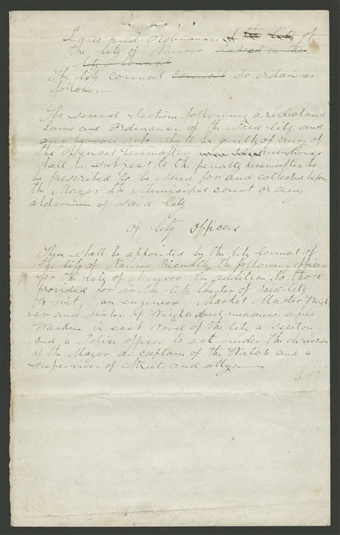 Laws and Ordinances of the City of
the City of
City Council
The City Council do ordain as
follows
The several sections following are declared
Laws and Ordinances of the said City and
any person who shall be guilty of any of
the offences hereinafter mentioned
shall be subject to the penalty hereinafter to
be prescribed to be sued for and collected before
the Mayor the Municipal Court or any
alderman of said City
Of City Officers
There shall be appointed by the City Council of
the City of Biennially the following officers
for the City of in addition to those
provided for in the City Charter of said City
To wit, an engineer, Market Master Weigh
er and Sealer of Weights and measures, a fire
Warden in each Ward of the City a Sexton
and a Police officer to act under the direction
of the Mayor as captain of the Watch and a
supervisor of Streets and alleys